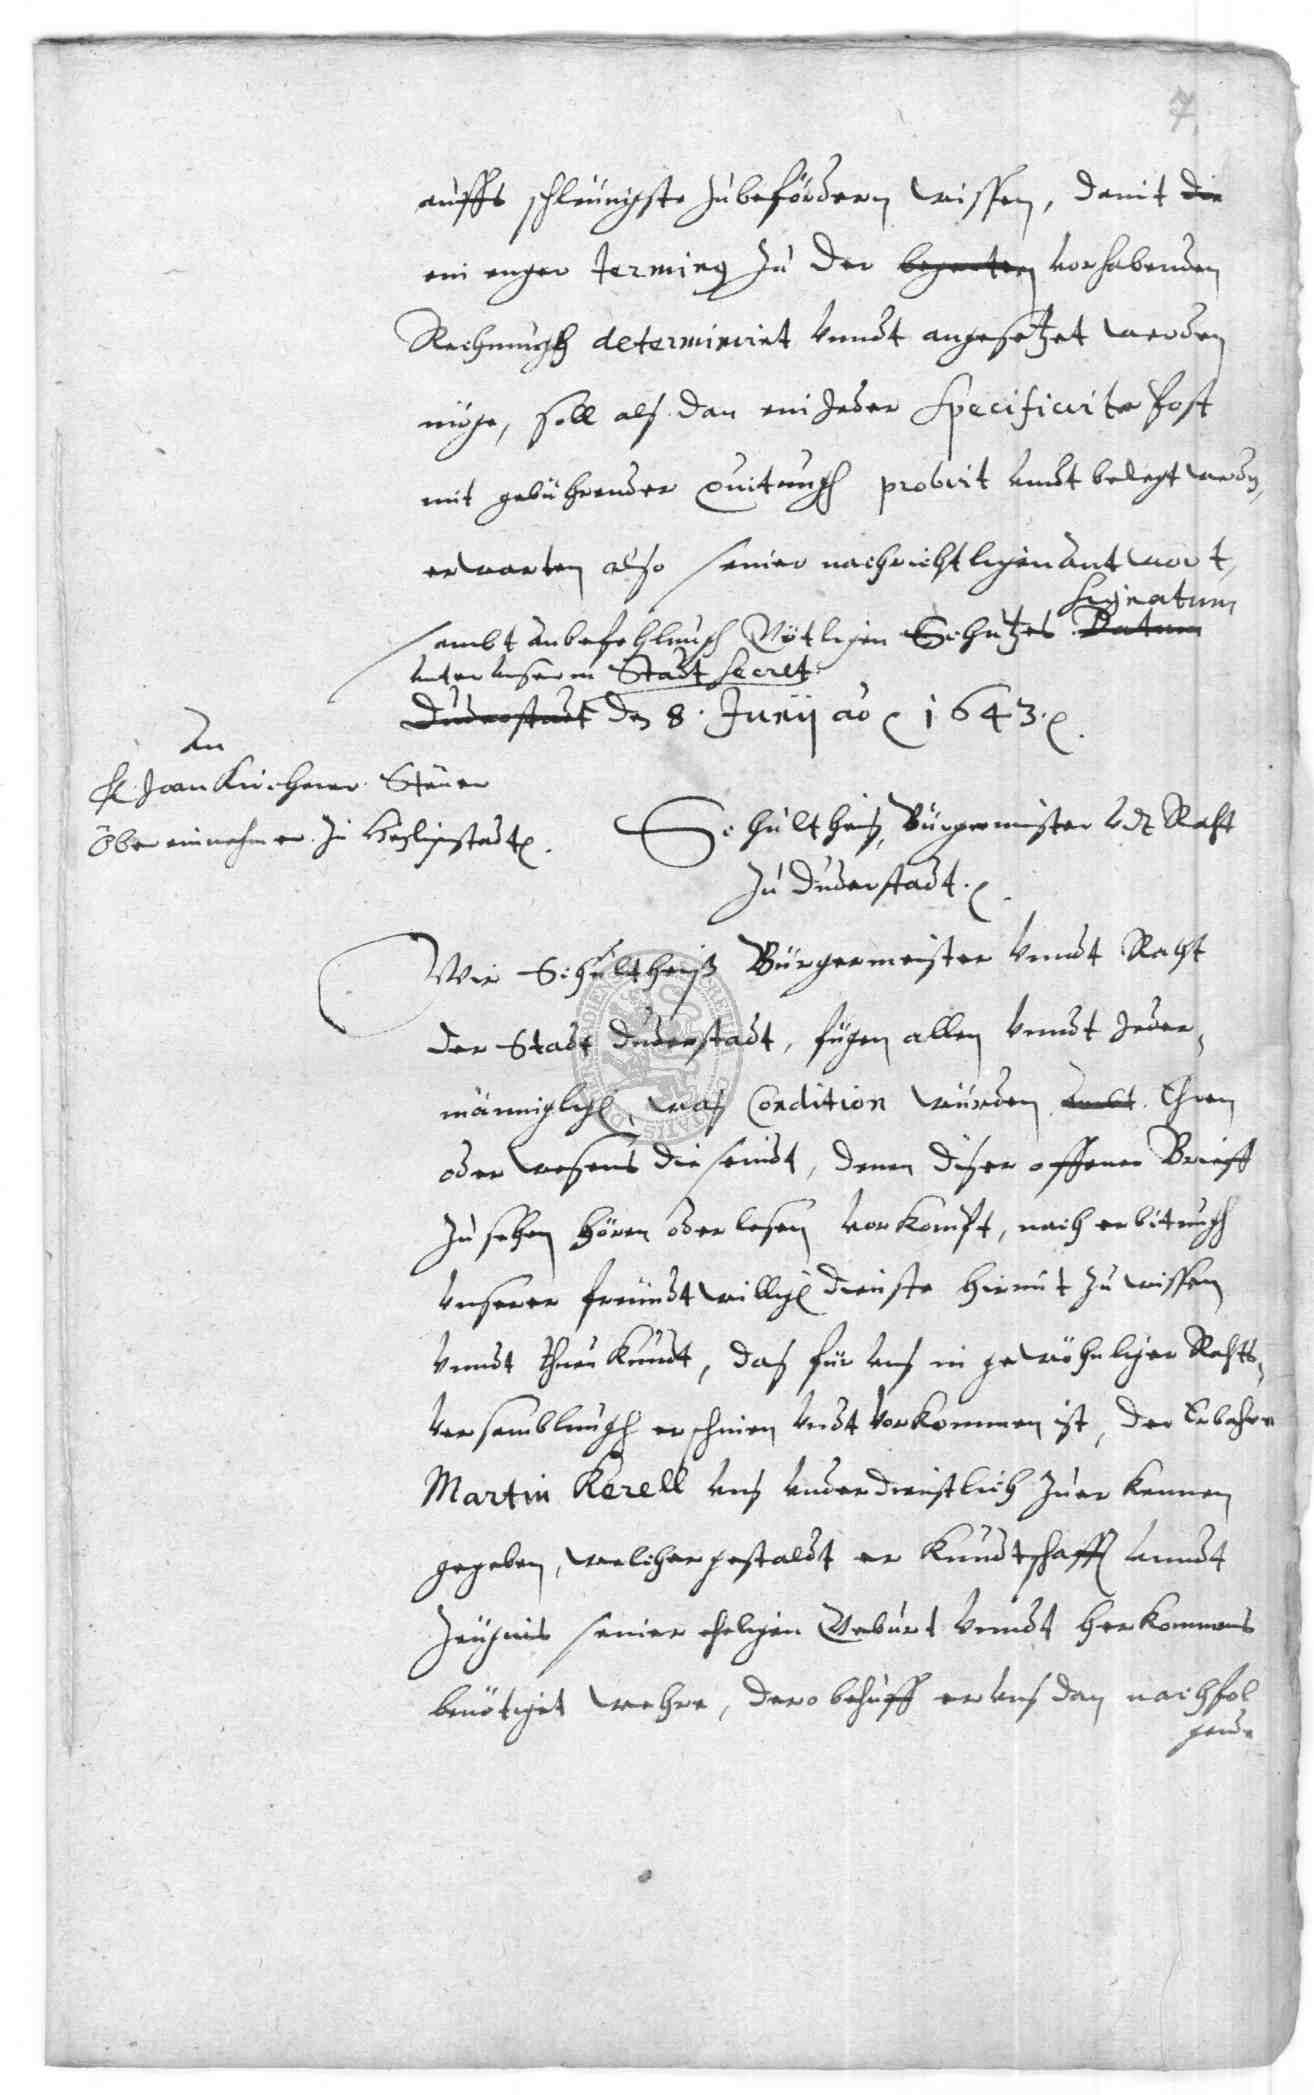 7.
auffs schleünigste zubefördern wissen, damit die
ein enger Terming zu der begerten vorhabenden
Rechnungh determinirt vnndt angesetzet werden
möge, soll alß dan ein Jeder Specificirte Post
mit gebührender Quitungh probirt vndt belegt werdn,
erwarten also seiner nachrichtligen antwort,
Signatum
sambt anbefehlungh Götligen Schutzes Datum
unter unserm Stadt Secret
Duderstadt den 8. Junij ao 1643.
An
H. Joan Kirchener Steuer
Ober einnehmer zu Heyligenstadt.
Schultheiß, Bürgermeister vdt Raht
zu Duderstadt.
Wir Schultheiß Bürgermeister vnndt Raht
der Stadt Duderstadt, fügen allen vnndt Jeder-
männiglich, was Condition würden Ehren
oder wesens die seindt, denen diser offener Brieff
zu sehen hören oder lesen vorkompt, nach erbitungh
vnserer freündtwillig dienste hirmit zu wissen
vnndt thuen kundt, daß für vns in gewöhnliger Rahts-
versamblungh erschinen vndt vorkommen ist, der Erbahre
Martin Kerell vns vnderdienstlich zuerkennen
gegeben, welcher gestaldt er Kundtschafft vnndt
Zeügnis seiner eheligen Geburt vnndt herkommens
benötiget wehre, dero behuff er vns dan nachfol
gende